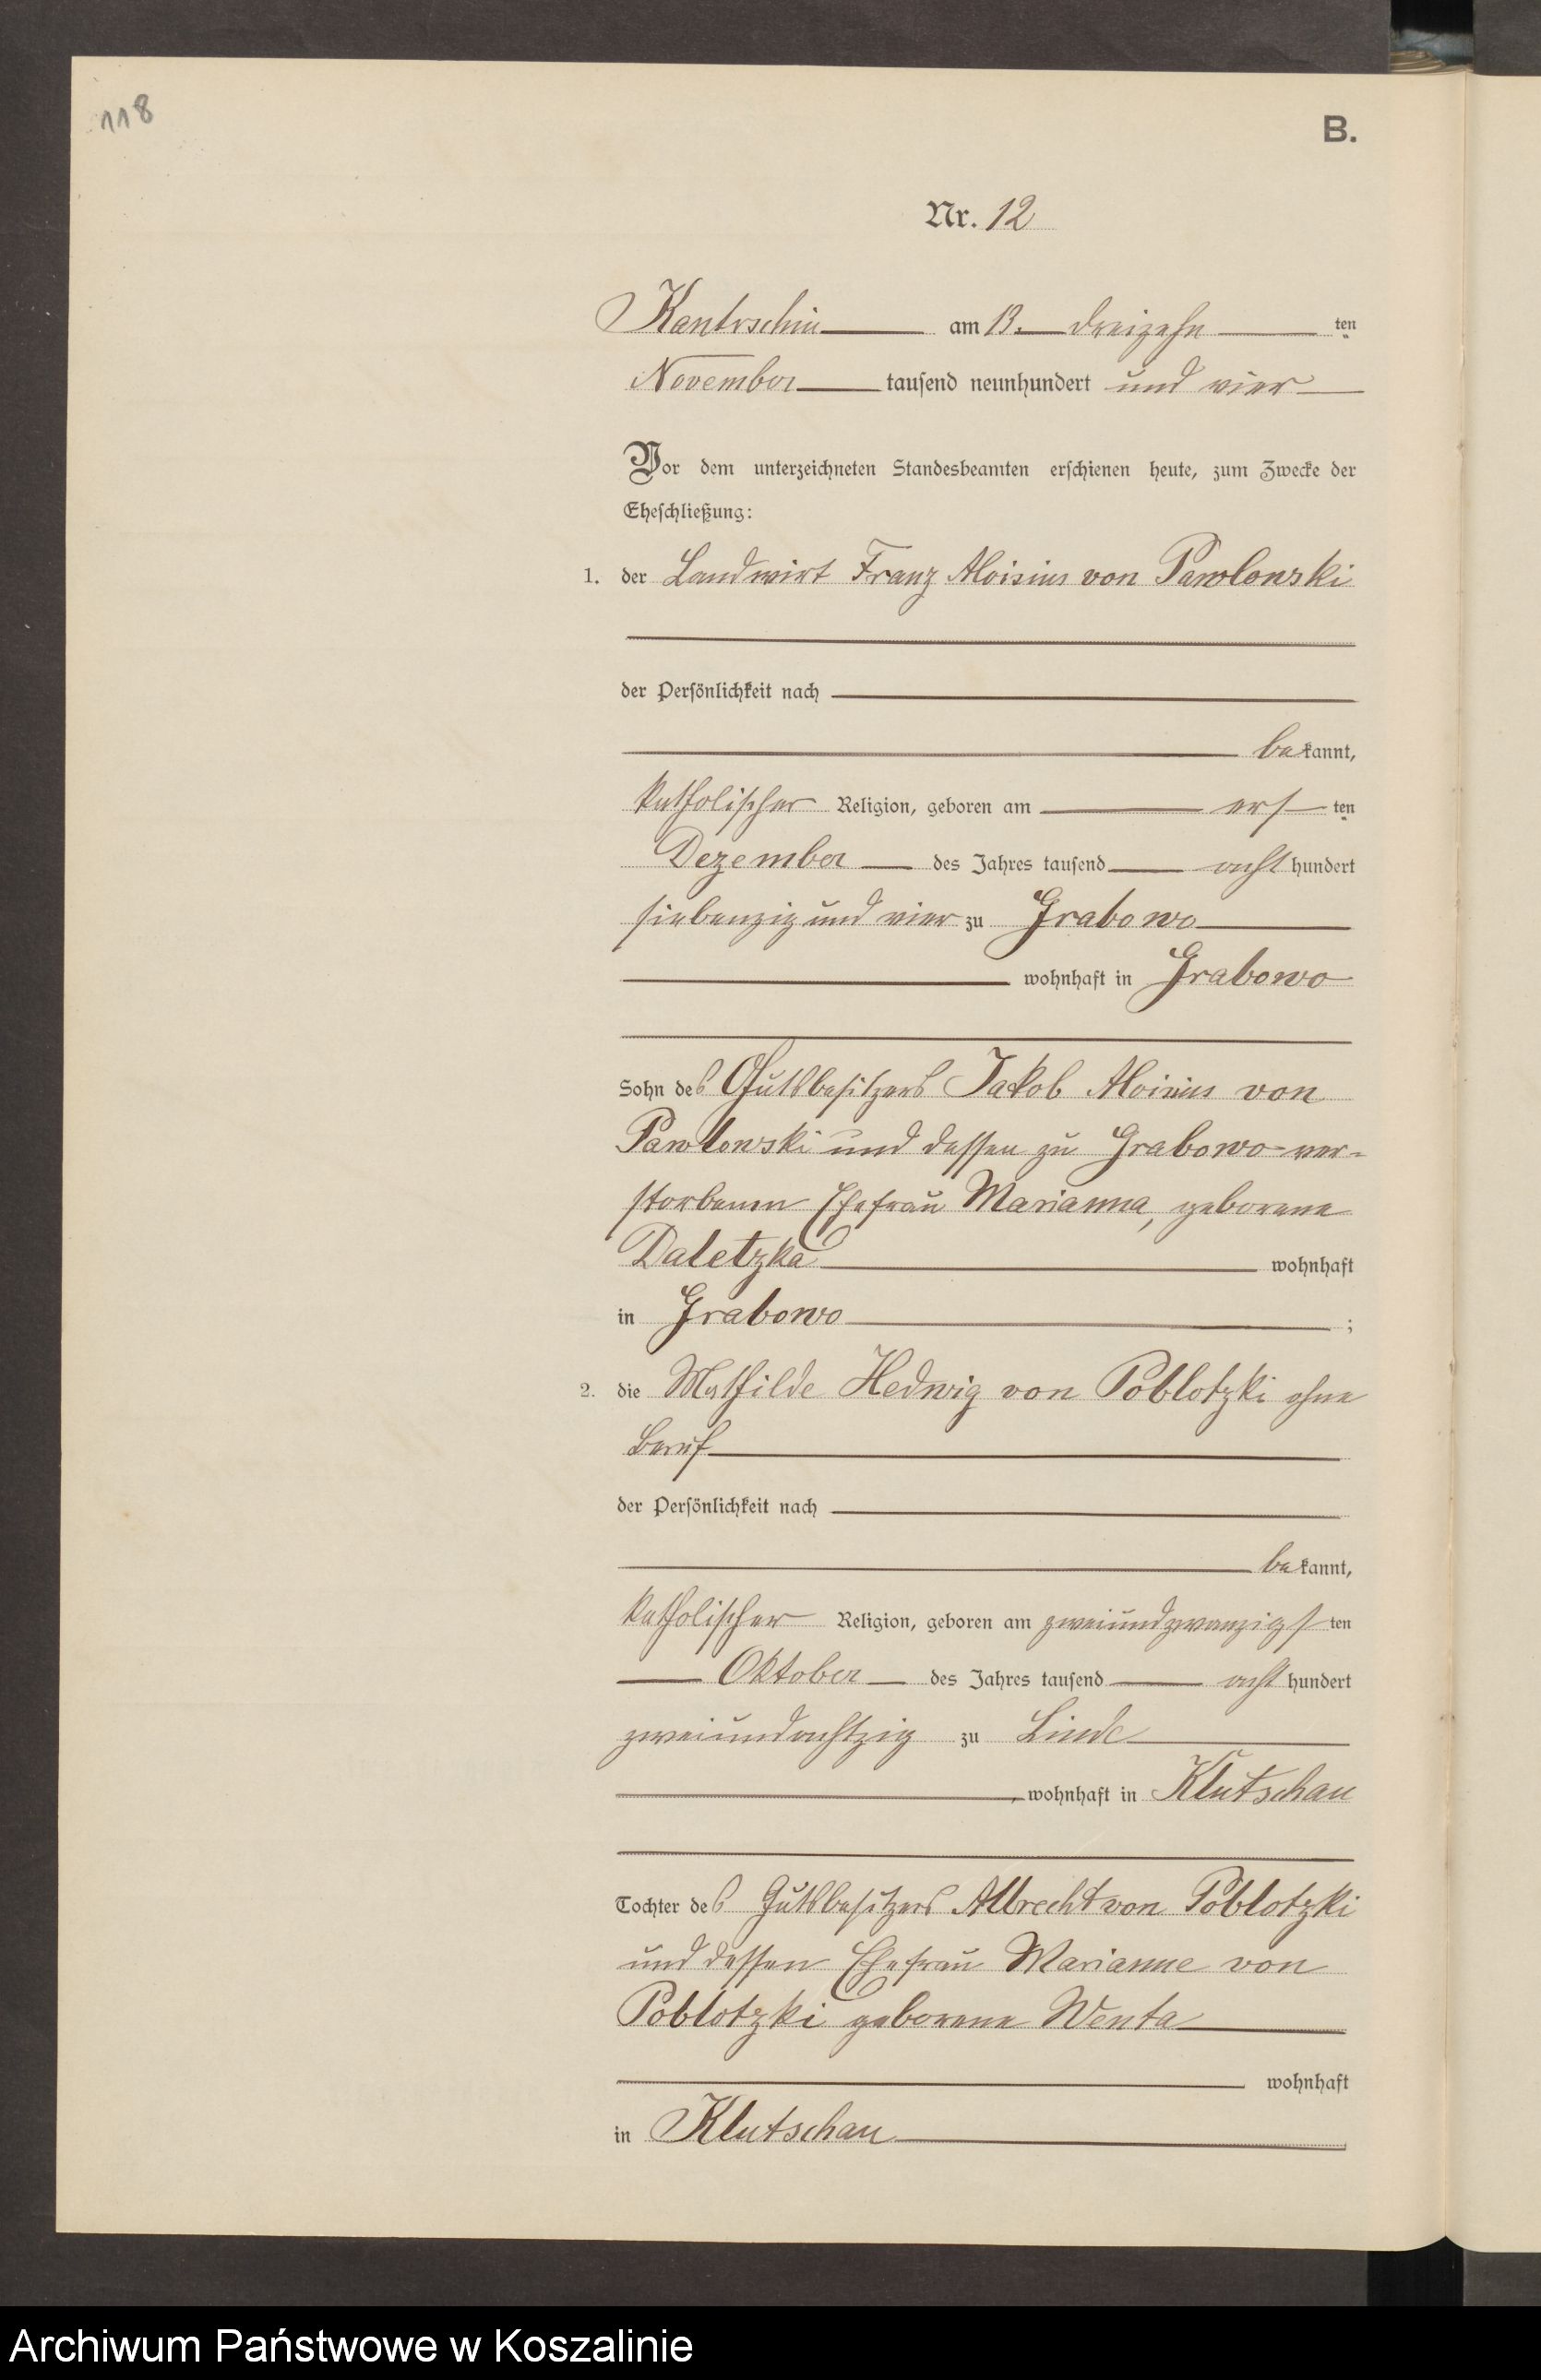 118
B.
Nr. 12
Kantrschin am 13. dreizehn ten
November tausend neunhundert und vier
Vor dem unterzeichneten Standesbeamten erschienen heute, zum Zwecke der
Eheschließung:
1. der Landwirt Franz Aloisius von Pawlowski
der Persönlichkeit nach
bekannt,
katholischer Religion, geboren am ers ten
Dezember des Jahres tausend acht hundert
siebenzig und vier zu Grabowo
wohnhaft in Grabowo
Sohn des Gutsbesitzers Jakob Aloisius von
Pawlowski und dessen zu Grabowo ver-
storbenen Ehefrau Marianna, geborene
Daletzka wohnhaft
in Grabowo ;
2. die Mathilde Hedwig von Poblotzki ohne
Beruf
der Persönlichkeit nach
bekannt,
katholischer Religion, geboren am zweiundzwanzigs ten
Oktober des Jahres tausend acht hundert
zweiundachtzig zu Linde
wohnhaft in Klutschau
Tochter des Gutsbesitzers Albrecht von Poblotzki
und dessen Ehefrau Marianne von
Poblotzki geborene Wenta
wohnhaft
in Klutschau
Archiwum Państwowe w Koszalinie